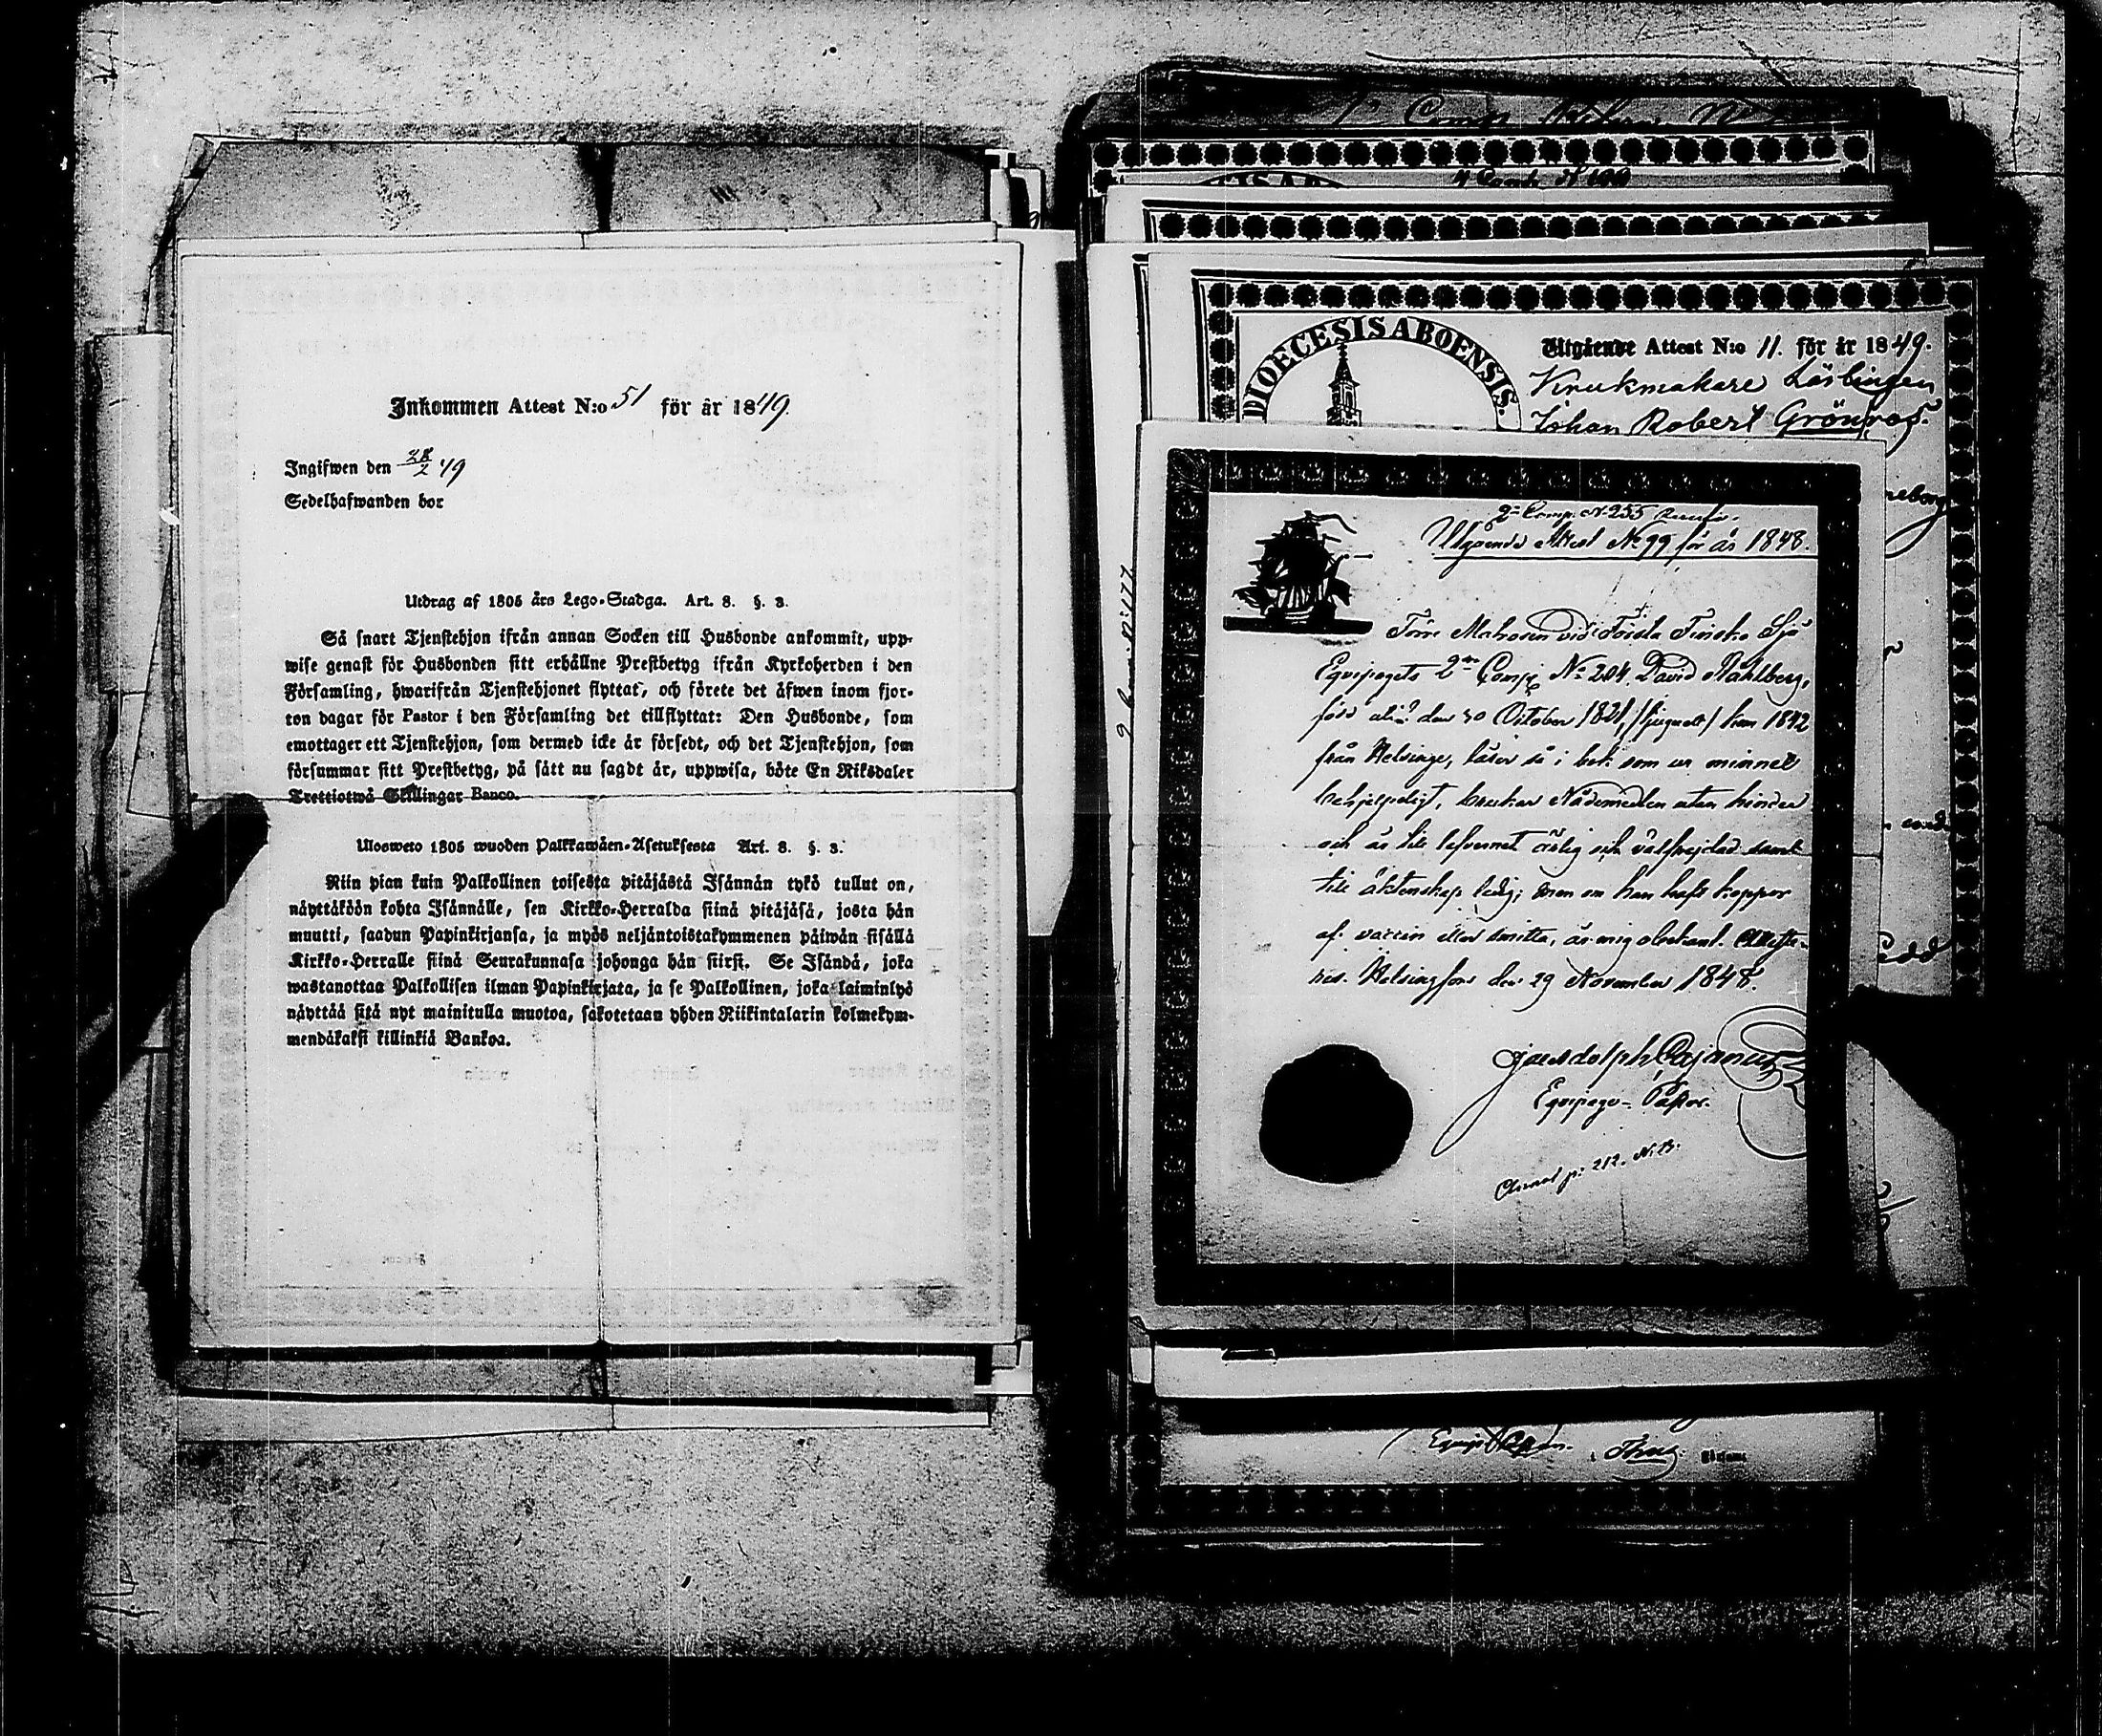 Inkommen Attest N:o 51 för år 1849.
Ingifwen den 28/2 49
Sedelhafwanden bor
Utdrag af 1805 års Lego-Stadga. Art. 8. §. 3.
Så snart Tjenstehjon ifrån annan Socken till Husbonde ankommit, upp-
wise genast för Husbonden sitt erhållne Prestbetyg ifrån Kyrkoherden i den
Församling, hwarifrån Tjenstehjonet flyttat, och förete det äfwen inom fjor-
ton dagar för Pastor i den Församling det tillflyttat: Den Husbonde, som
emottager ett Tjenstehjon, som dermed icke är försedt, och det Tjenstehjon, som
försummar sitt Prestbetyg, på sätt nu sagdt är, uppwisa, böte En Riksdaler
Trettiotwå Skillingar Banco.
Ulosweto 1805 wuoden Palkkawäen-Asetuksesta Art. 8. §. 3.
Niin pian kuin Palkollinen toisesta pitäjästä Isännän tykö tullut on,
näyttäköön kohta Isännälle, sen Kirkko-Herralda siinä pitäjäsä, josta hän
muutti, saadun Papinkirjansa, ja myös neljäntoistakymmenen päiwän sisällä
Kirkko-Herralle siinä Seurakunnasa johonga hän siirsi. Se Isändä, joka
wastanottaa Palkollisen ilman Papinkirjata, ja se Palkollinen, joka laiminlyö
näyttää sitä nyt mainitulla muotoa, sakotetaan yhden Riikintalarin kolmekym-
mendäkaksi killinkiä Bankoa.
DIOECESIS ABOENSIS.
Utgående Attest N:o 11. för år 1849.
Krukmakare Lärlingen
Johan Robert Grönros.
2a Comp. N. 255
Utgående Attest No 99 för år 1848.
Förre Matrosen vid Första Finska Sjö
Equipagets 2dra Comp. No 204. David Stahlberg,
född den 30 October 1821, kom 1842
från Helsinge, läser så i bok som ur minnet
behjelpeligt, brukar Nådemedlen utan hinder
och är till lefvernet ärlig och välfrejdad samt
till äktenskap ledig; men om han haft koppor
af vaccin eller smitta, är mig obekant. Atteste-
ras. Helsingfors den 29 November 1848.
Cajanus
Equipage-Pastor.
p. 212. N. B.